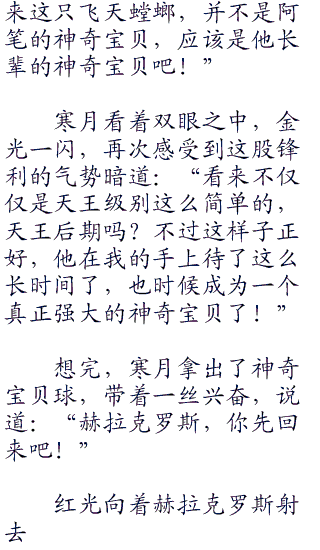 来这只飞天螳螂，并不是阿
笔的神奇宝贝，应该是他长
辈的神奇宝贝吧！”
寒月看着双眼之中，金
光一闪，再次感受到这股锋
利的气势暗道：“看来不仅
仅是天王级别这么简单的，
天王后期吗？不过这样子正
好，他在我的手上待了这么
长时间了，也时候成为一个
真正强大的神奇宝贝了！”
想完，寒月拿出了神奇
宝贝球，带着一丝兴奋，说
道：“赫拉克罗斯，你先回
来吧！”
红光向着赫拉克罗斯射
去